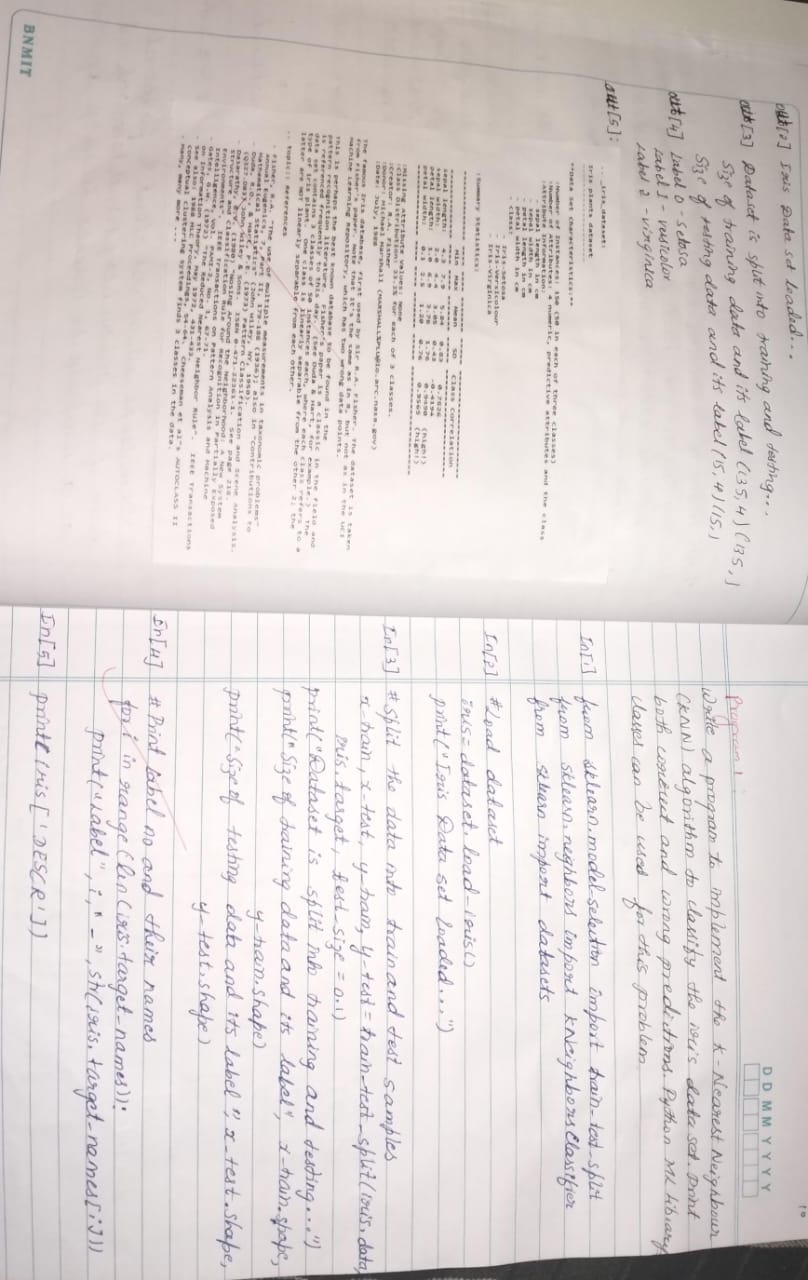 out[2] Iris Data set loaded...
out[3] Dataset is split into training and testing...
Size of training data and its label (135, 4) (135, )
Size of testing data and its label (15, 4) (15, )
out[4] Label 0 - setosa
Label 1 - versicolor
Label 2 - virginica
out[5]:
.. _iris_dataset:
Iris plants dataset
**Data Set Characteristics:**
:Number of Instances: 150 (50 in each of three classes)
:Number of Attributes: 4 numeric, predictive attributes and the class
:Attribute Information:
- sepal length in cm
- sepal width in cm
- petal length in cm
- petal width in cm
- class:
- Iris-Setosa
- Iris-Versicolour
- Iris-Virginica
:Summary Statistics:
Min Max Mean SD Class Correlation
sepal length: 4.3 7.9 5.84 0.83 0.7826
sepal width: 2.0 4.4 3.05 0.43 -0.4194
petal length: 1.0 6.9 3.76 1.76 0.9490 (high!)
petal width: 0.1 2.5 1.20 0.76 0.9565 (high!)
:Missing Attribute Values: None
:Class Distribution: 33.3% for each of 3 classes.
:Creator: R.A. Fisher
:Donor: Michael Marshall (MARSHALL%PLU@io.arc.nasa.gov)
:Date: July, 1988
The famous Iris database, first used by Sir R.A. Fisher. The dataset is taken
from Fisher's paper. Note that it's the same as in R, but not as in the UCI
Machine Learning Repository, which has two wrong data points.
This is perhaps the best known database to be found in the
pattern recognition literature. Fisher's paper is a classic in the field and
is referenced frequently to this day. (See Duda & Hart, for example.) The
data set contains 3 classes of 50 instances each, where each class refers to a
type of iris plant. One class is linearly separable from the other 2; the
latter are NOT linearly separable from each other.
.. topic:: References
- Fisher, R.A. "The use of multiple measurements in taxonomic problems"
Annual Eugenics, 7, Part II, 179-188 (1936); also in "Contributions to
Mathematical Statistics" (John Wiley, NY, 1950).
- Duda, R.O., & Hart, P.E. (1973) Pattern Classification and Scene Analysis.
(Q327.D83) John Wiley & Sons. ISBN 0-471-22361-1. See page 218.
- Dasarathy, B.V. (1980) "Nosing Around the Neighborhood: A New System
Structure and Classification Rule for Recognition in Partially Exposed
Environments". IEEE Transactions on Pattern Analysis and Machine
Intelligence, Vol. PAMI-2, No. 1, 67-71.
- Gates, G.W. (1972) "The Reduced Nearest Neighbor Rule". IEEE Transactions
on Information Theory, May 1972, 431-433.
- See also: 1988 MLC Proceedings, 54-64. Cheeseman et al"s AUTOCLASS II
conceptual clustering system finds 3 classes in the data.
- Many, many more ...
BNMIT
D D M M Y Y Y Y
Program 1
Write a program to implement the K-Nearest Neighbour
(KNN) algorithm to classify the iris data set. Print
both correct and wrong predictions. Python ML library
classes can be used for this problem
In[1] from sklearn.model-selection import train-test-split
from sklearn.neighbors import KNeighborsClassifier
from sklearn import datasets
In[2] #Load dataset
iris = dataset. load-iris()
print("Iris Data set loaded...")
In[3] # split the data into train and test samples
x-train, x-test, y-train, y-test = train-test_split(iris, data,
iris.target, test_size = 0.1)
print("Dataset is split into training and testing...")
print("Size of training data and its label", x-train.shape,
y-train.shape)
print("Size of testing data and its label", x_test.shape,
y-test.shape)
In[4] # Print label no and their names
for i in range(len(iris.target-names)):
print("Label", i, "-", str(iris.target-names[i]))
In[5] print(iris['DESCR'])